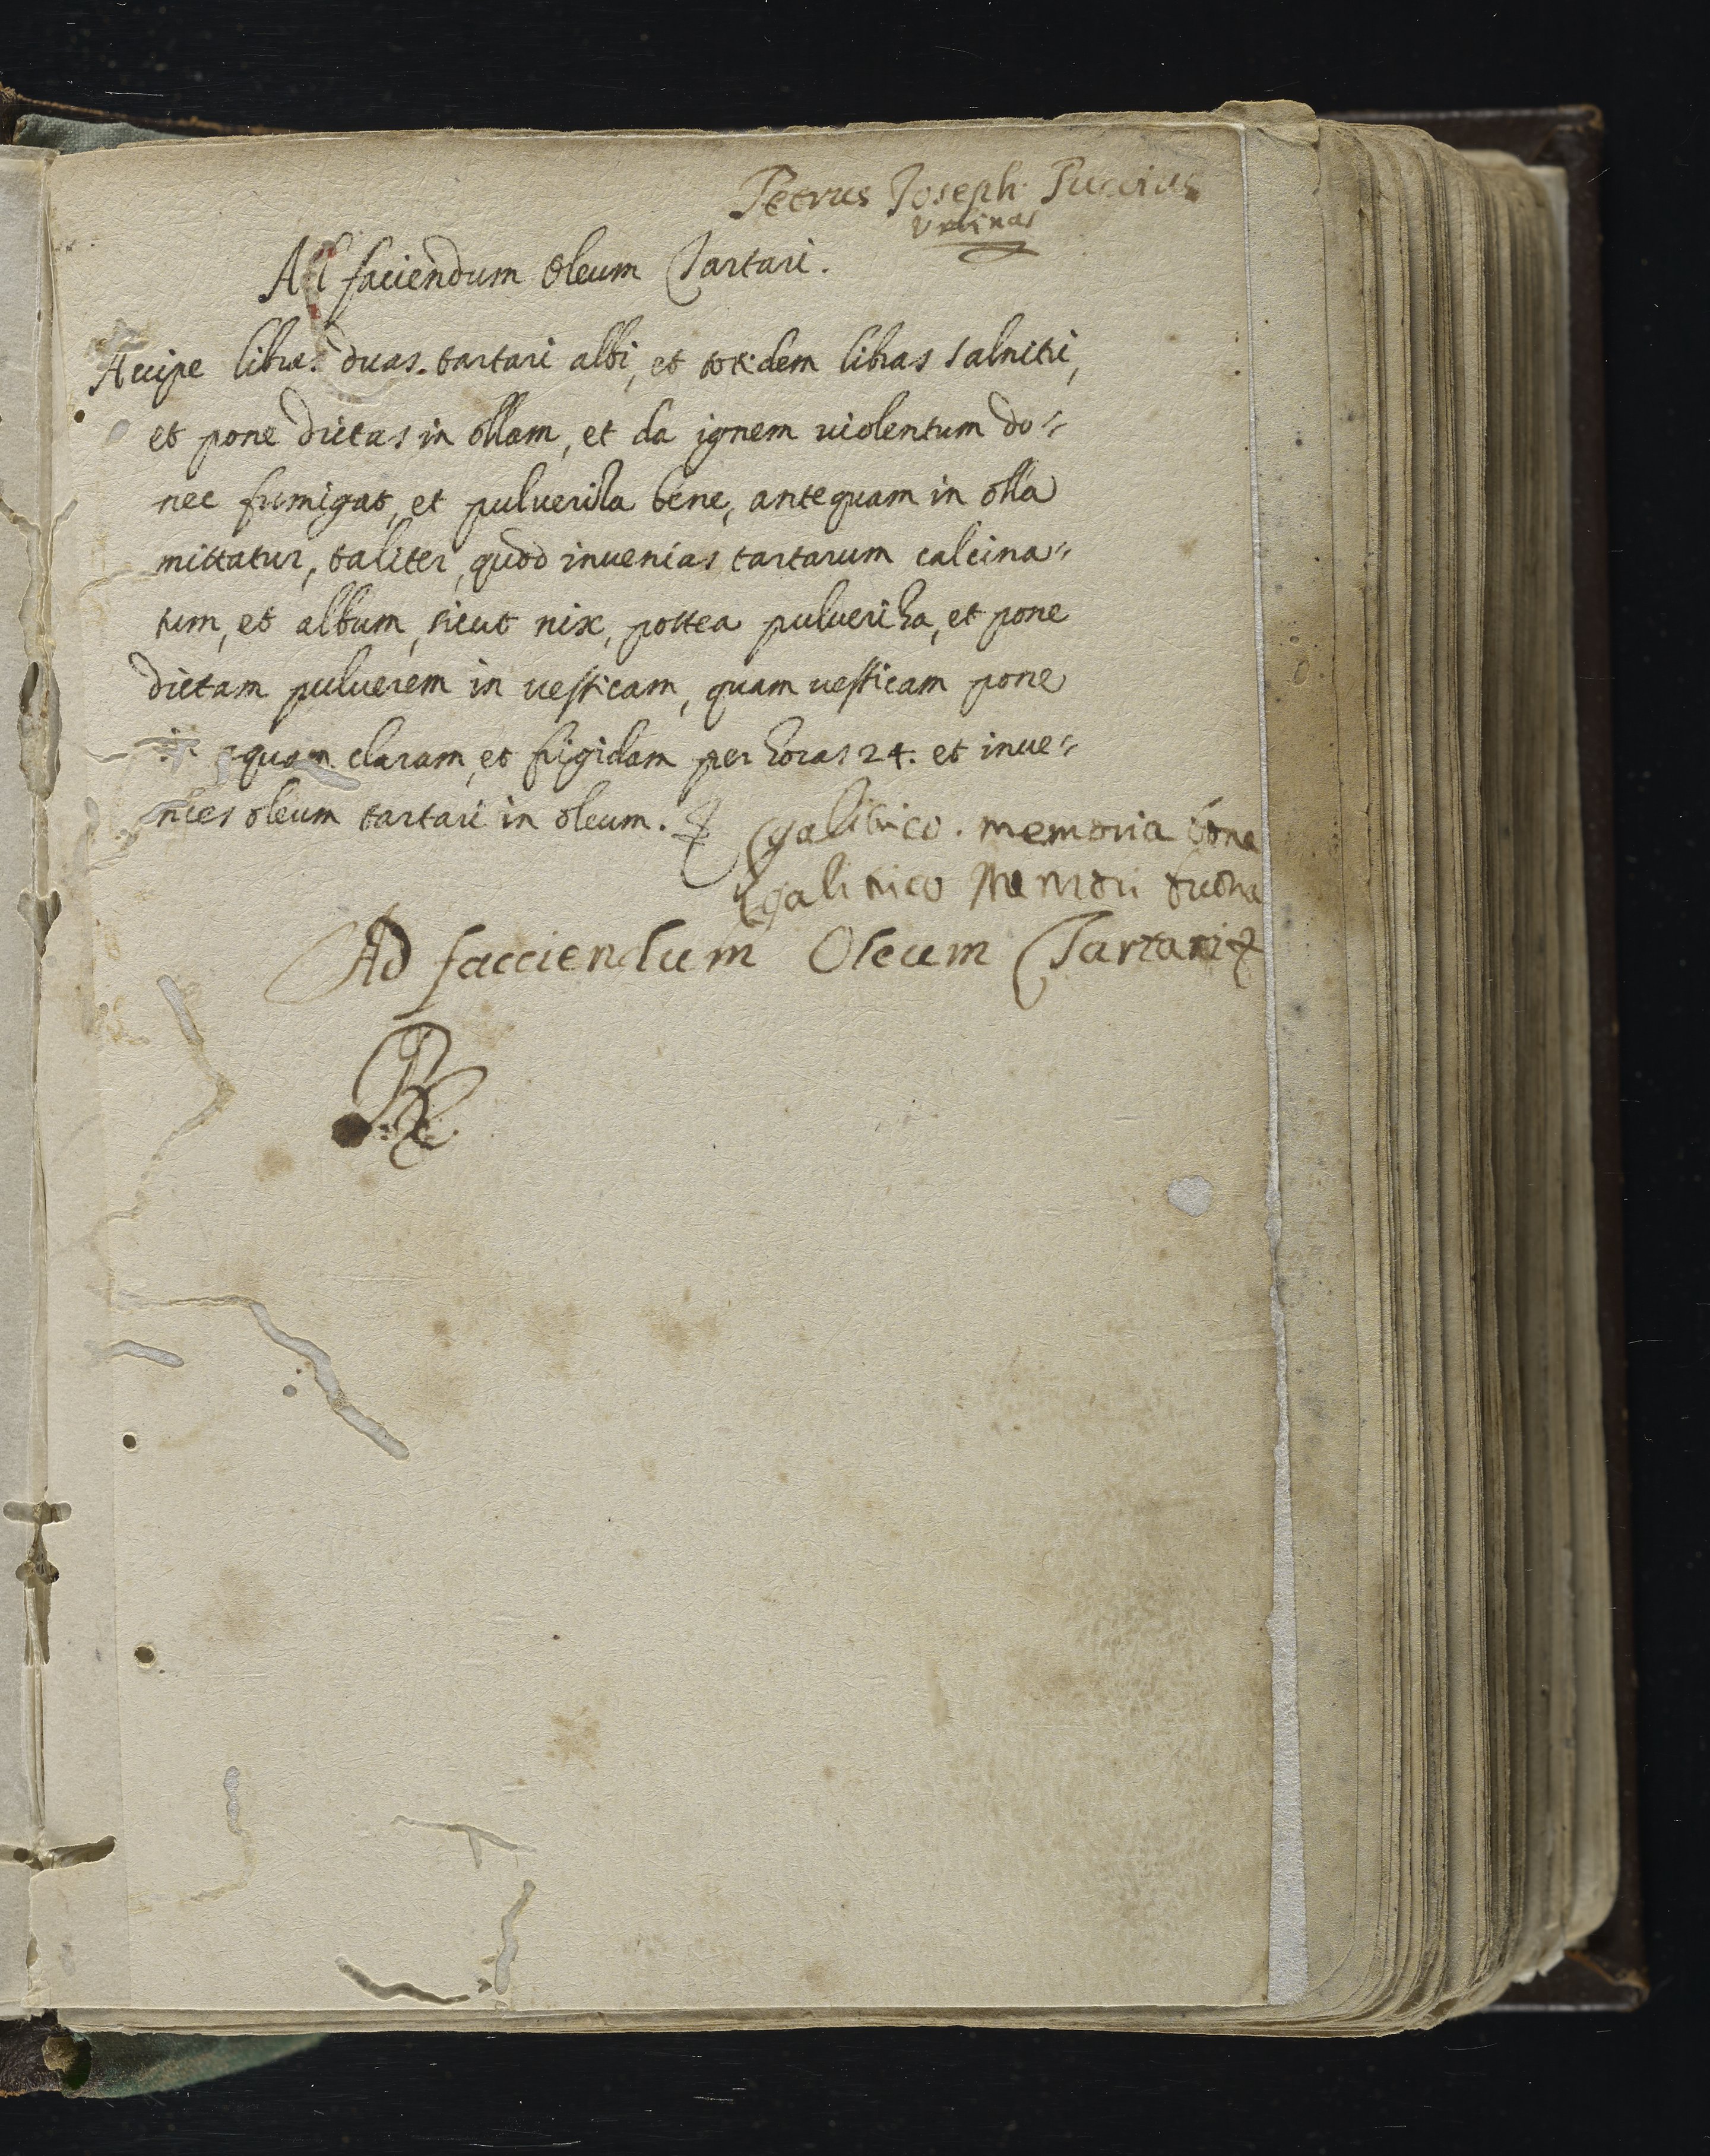 Petrus Joseph Puccius
Urbinas
Ad faciendum Oleum Tartari.
Accipe libras duas tartari albi, et totidem libras salnitri,
et pone dictas in ollam, et da ignem uiolentum do=
nec fumigat, et pulueriza bene, antequam in olla
mittatur, taliter, quod inuenias tartarum calcina=
tum, et album, sicut nix, postea pulueriza, et pone
dictam puluerem in uesticam, quam uesticam pone
in aquam claram, et frigidam per horas 24. et inue=
nies oleum tartari in oleum.
memoria bona
Ad facciendum Oleum Tartari